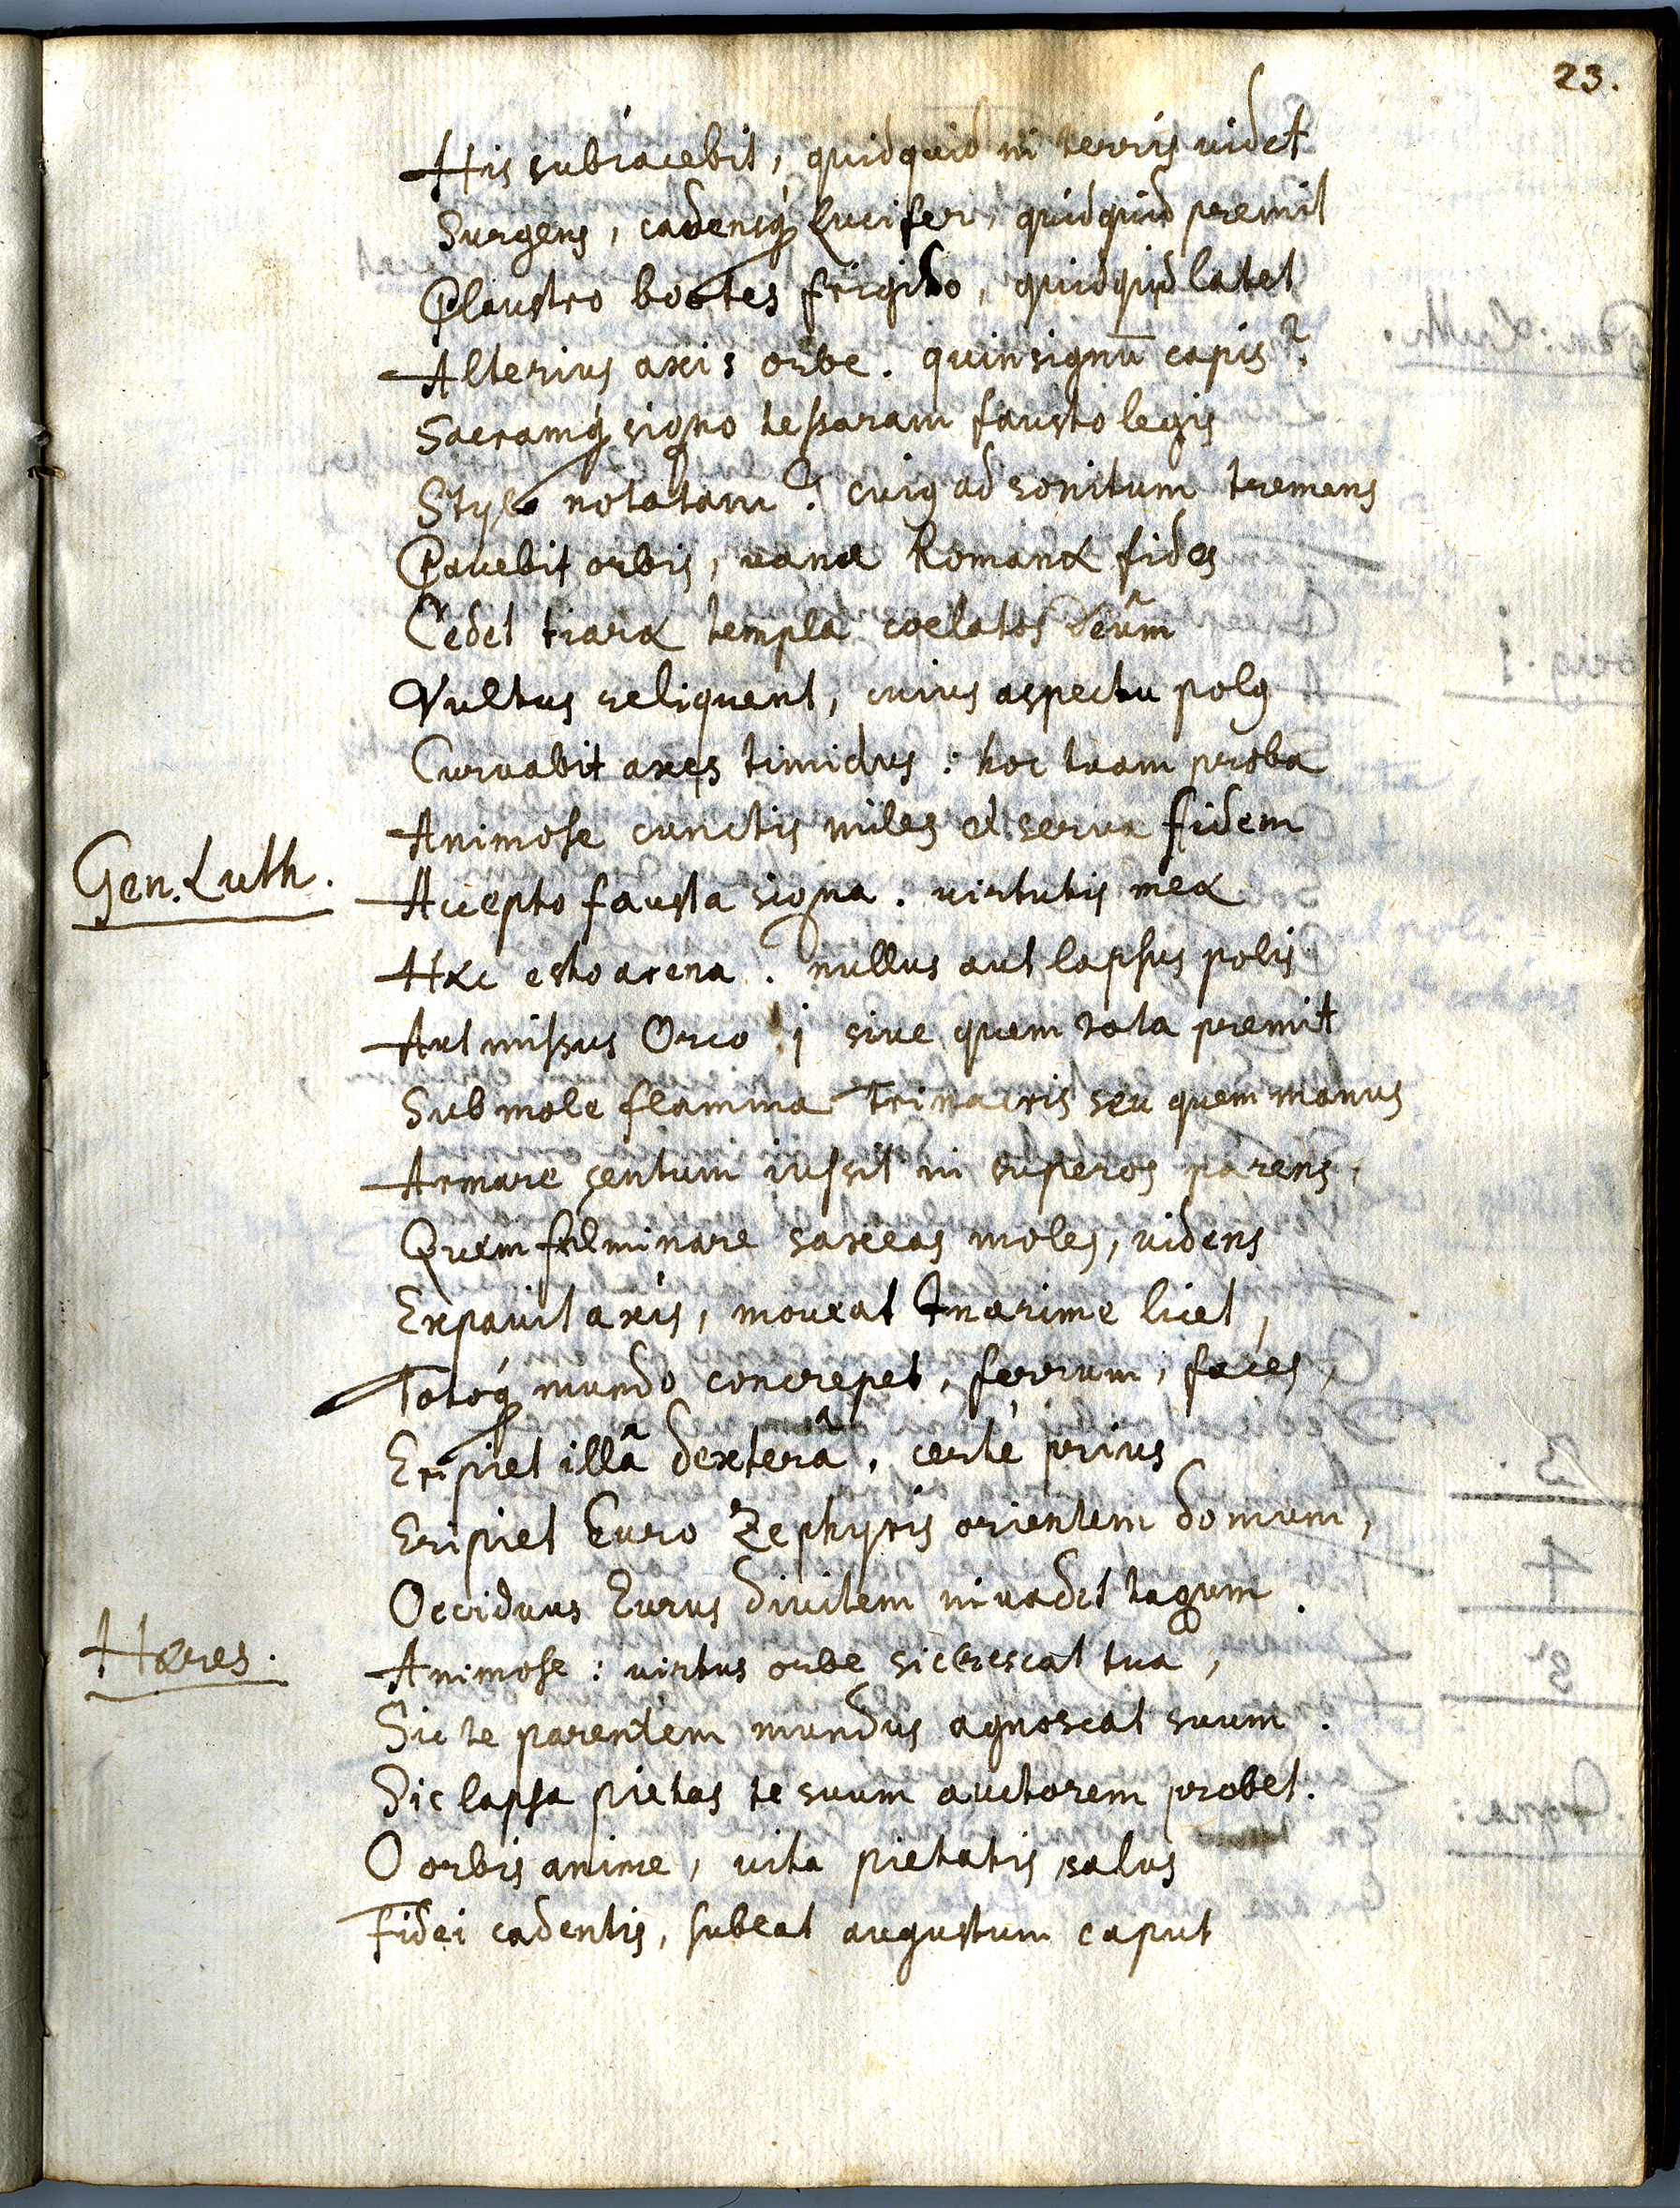 23.
His subiacebit, quidquid in terris videt
Surgens, cadensq́ Lucifer, quidquid premit
Plaustro bootes frigido, quidquid latet
Alterius axis orbe. quin signū capis?
Sacramq́ signo tesseram fausto legis
Stylo notatam? cuiꝯ ad sonitum tremens
Pavebit orbis, vana Romanæ fides
Cedet tiaræ templa coelatos Deûm
Vultus reliquent, cuius aspectu polꝯ
Curuabit axes timidus: hoc tuam proba
Animose cunctis miles et serua fidem
Gen. Luth. Accepto fausta signa. virtutis meæ
Hæc esto arena. nullus aut lapsus polis
Aut missus Orco; sive quem tota premit
Sub mole flamma Trinacris seu quem manus
Armare centum iussit in superos parens,
Quem fulminare saxeas moles, videns
Expauit axis, moveat Inarime licet,
Totoq́ mundo concrepet, ferrum, faces,
Eripiet illâ dexterâ. certè prius
Eripiet Euro Zephyris orientem domum,
Occiduus Eurus divitem invadet tagum.
Hæres. Animose: virtus orbe sic crescat tua,
Sic te parentem mundus agnoscat suum.
Sic lapsa pietas te suum auctorem probet.
O orbis anime, vita pietatis, salus
Fidei cadentis, subeat augustum caput